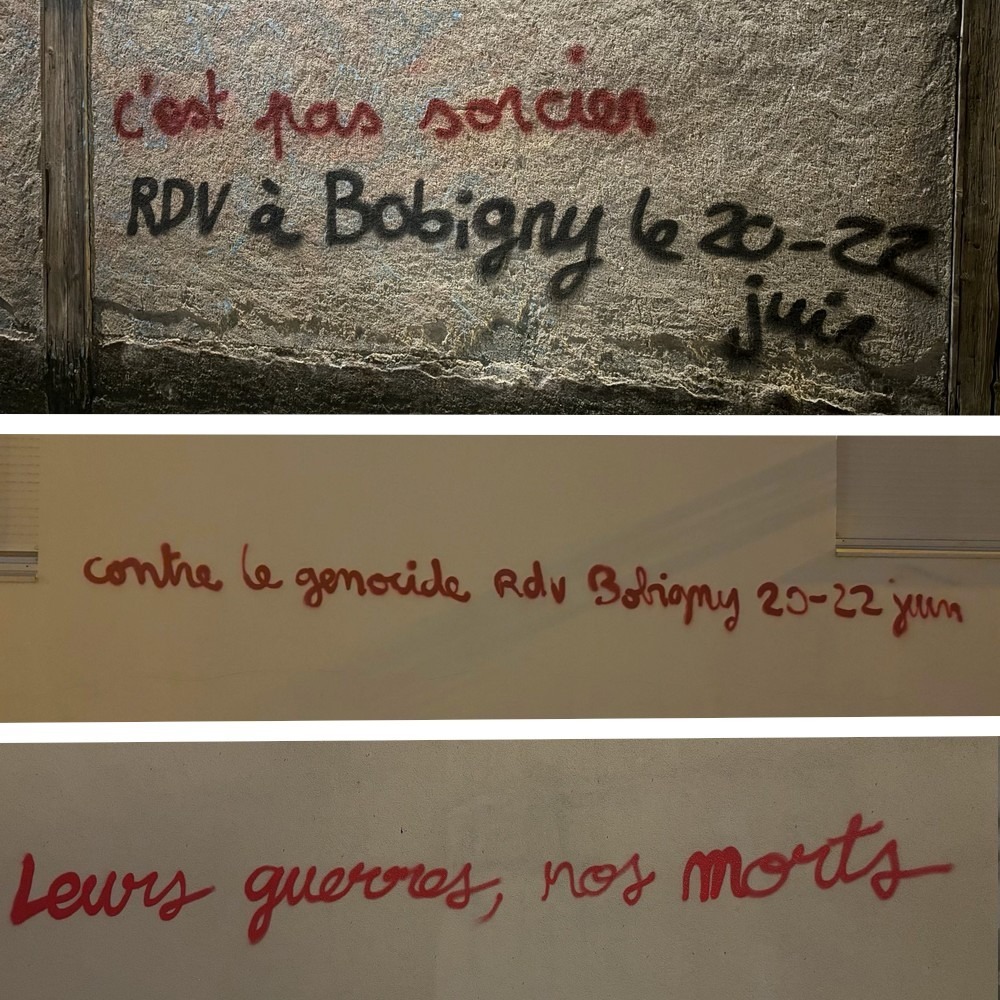 c'est pas sorcier
RDV à Bobigny le 20-22
juin
contre le genocide Rdv Bobigny 20-22 juin
Leurs guerres, nos morts